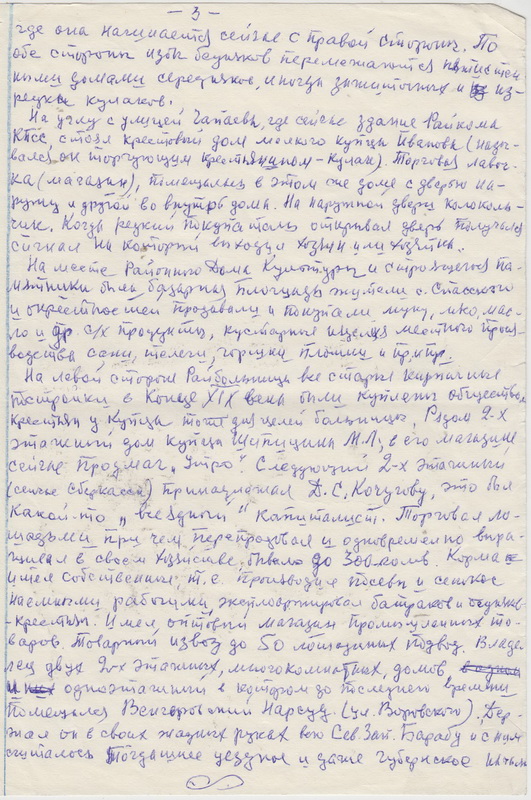 - 3 -
где она начинается сейчас с правой стороны. По
обе стороны избы бедняков перемежаются пятистен
ными домами середняков, иногда зажиточных и из-
редка кулаков.
На углу с улицей Чапаева, где сейчас здание Райкома
КПСС, стоял крестовый дом мелкого купца Иванова (назы-
вался он торгующим крестьянином-кулак). Торговая лавоч-
ка (магазин), помещалась в этом же доме с дверью на-
ружу и другой во внутрь дома. На наружной двери колоколь-
чик. Когда редкий покупатель открывал дверь получался
сигнал на который выходил хозяин или хозяйка.
На месте Районного Дома Культуры и строящегося па-
мятника была базарная площадь жители с. Спасского
и окрестностей продавали и покупали муку, мясо, мас-
ло и др с/х продукты, кустарные изделия местного произ-
водства сани, телеги, горшки и пр. пр.
На левой стороне Райбольницы все старые кирпичные
постройки в конце XIX века были куплены обществом
крестьян у купца тоже для целей больницы. Рядом 2-х
этажный дом купца Шипицина М.Л; в его магазине
сейчас Продмаг „Утро“ Следующий 2-х этажный
(сейчас сберкасса) принадлежал Д.С. Кочугову, это был
какой-то „звездный“ капиталист. Торговал ло-
шадьми при чем перепродавал и одновременно выра-
щивал в своем хозяйстве до 300 голов. Корма
имел собственные, т.е. производил посевы и сенокос
наемными рабочими, эксплоатировал батраков и бедняков
-крестьян. Имел оптовый магазин промышленных то-
варов. Товарный извоз до 50 лошадиных подвод. Владе-
лец двух 2-х этажных, многокомнатных, домов
одноэтажный в котором до последнего времени
помещался Венгеровский Нарсуд (ул. Воровского). Дер-
жал он в своих жадных руках всю Сев. Зап. Барабу и с ним
считалось тогдашнее уездное и даже губернское началь